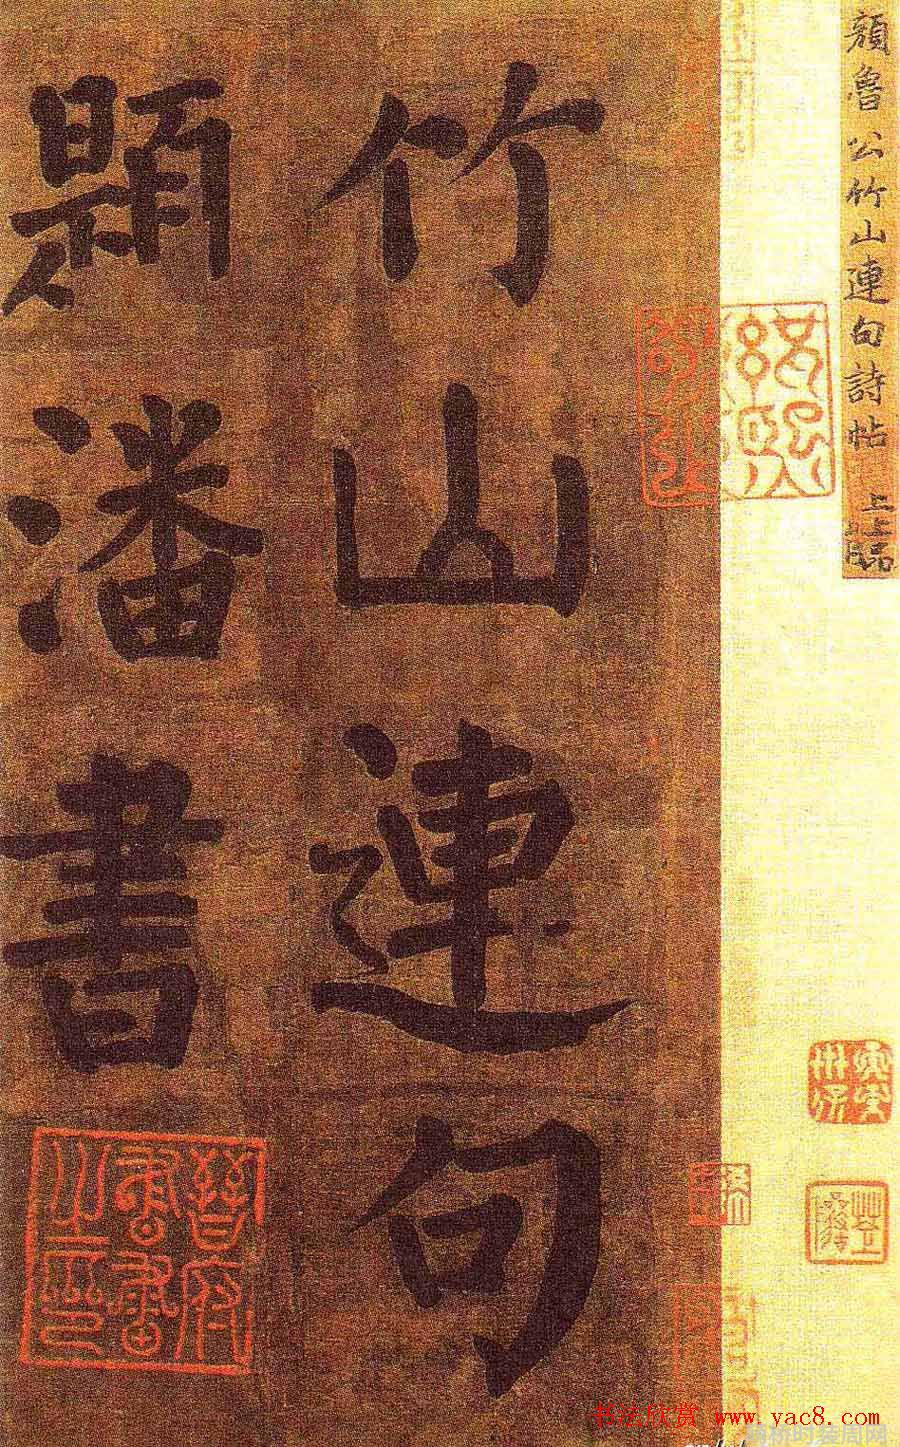 顏魯公竹山連句詩帖 上上品
竹山連句
題潘書
緝熙
晉府
書畫
之印
书法欣赏 www.yac8.com